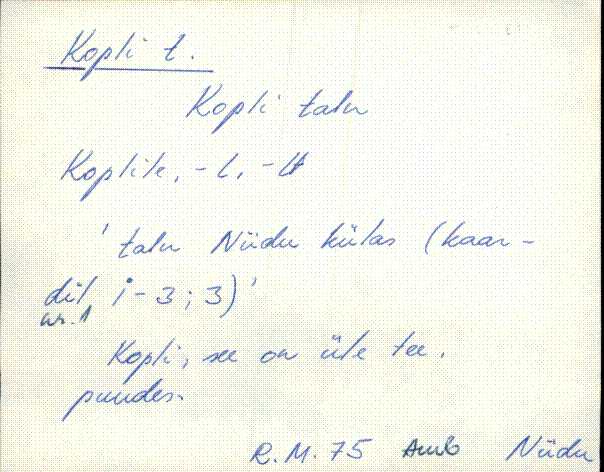 Kopli t.
Kopli talu
Koplile, -l, -lt
'talu Nüdu külas (kaar-
dil i-3; 3)'
nr. 1
Kopli, see on üle tee,
puudes.
R.M. 75 Amb Nüdu